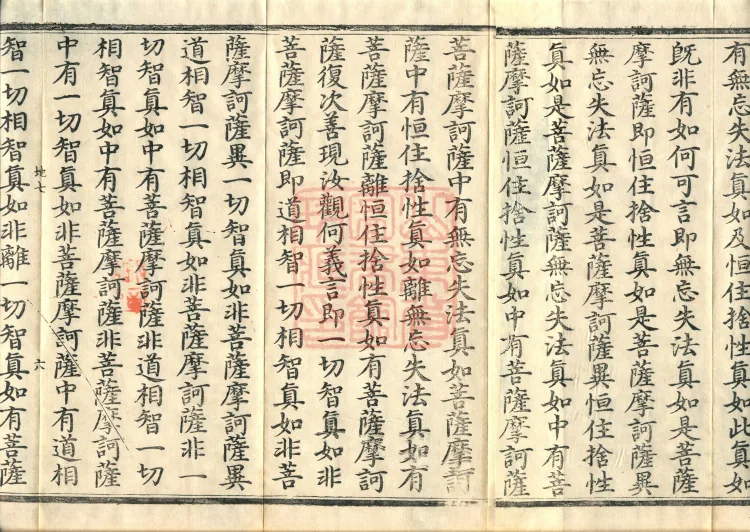 有無忘失法眞如及恒住捨性眞如此眞如
旣非有如何可言即無忘失法眞如是菩薩
摩訶薩即恒住捨性眞如是菩薩摩訶薩異
無忘失法眞如是菩薩摩訶薩異恒住捨性
眞如是菩薩摩訶薩無忘失法眞如中有菩
薩摩訶薩恒住捨性眞如中有菩薩摩訶薩
菩薩摩訶薩中有無忘失法眞如菩薩摩訶
薩中有恒住捨性眞如離無忘失法眞如有
菩薩摩訶薩離恒住捨性眞如有菩薩摩訶
薩復次善現汝觀何義言即一切智眞如非
菩薩摩訶薩即道相智一切相智眞如非菩
薩摩訶薩異一切智眞如非菩薩摩訶薩異
道相智一切相智眞如非菩薩摩訶薩非一
切智眞如中有菩薩摩訶薩非道相智一切
相智眞如中有菩薩摩訶薩非菩薩摩訶薩
中有一切智眞如非菩薩摩訶薩中有道相
地七 六
智一切相智眞如非離一切智眞如有菩薩